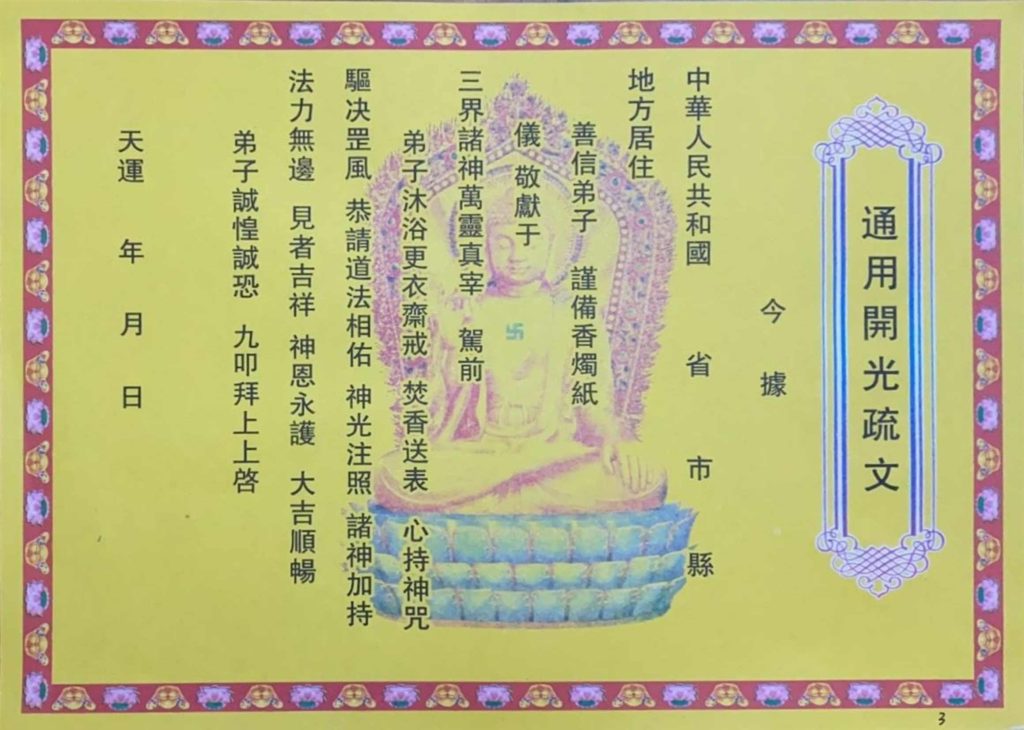 通用開光疏文
今據
中華人民共和國 省 市 縣
地方居住
善信弟子 謹備香燭紙
儀 敬獻于
三界諸神萬靈真宰 駕前
弟子沐浴更衣齋戒 焚香送表 心持神咒
驅决罡風 恭請道法相佑 神光注照 諸神加持
法力無邊 見者吉祥 神恩永護 大吉順暢
弟子誠惶誠恐 九叩拜上上啓
天運 年 月 日
卐
3